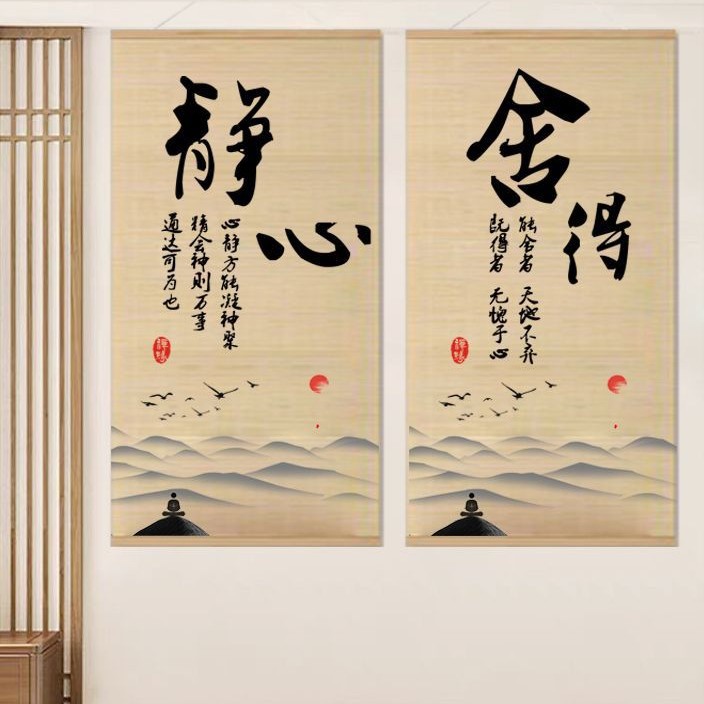 静心
心静方能凝神聚
精会神则万事
通达可为也
舍得
能舍者 天地不弃
既得者 无愧于心